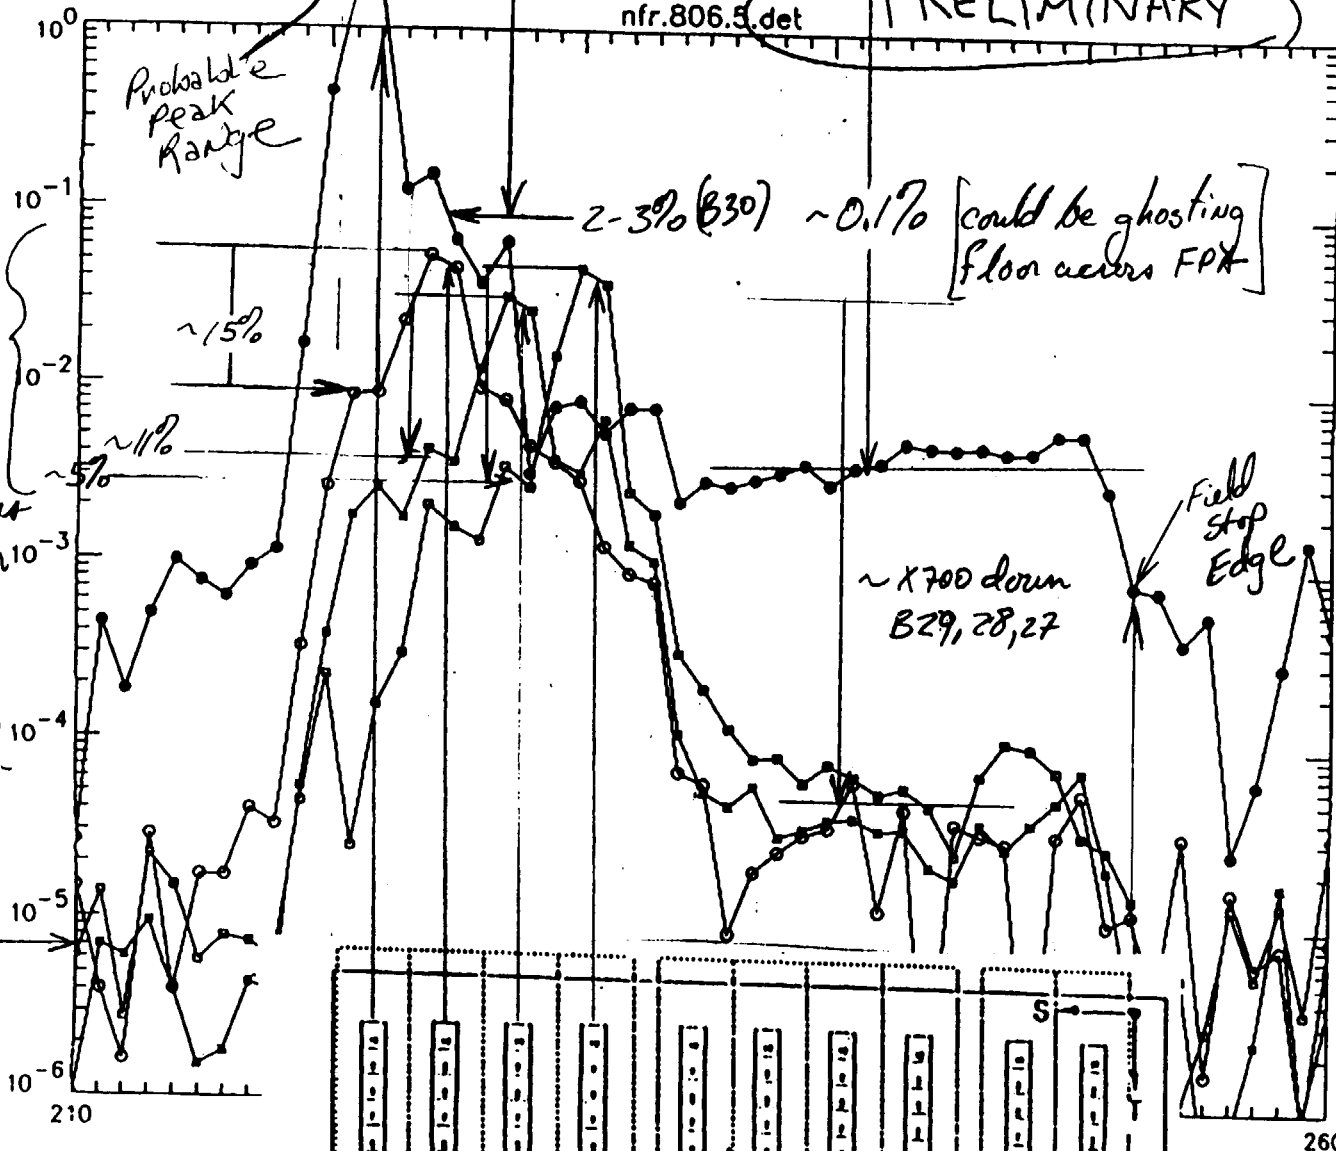 nfr.806.5.det
PRELIMINARY
10^0
Probable
Peak
Range
10^-1
2-3% (B30)
~0.1%
[could be ghosting
floor across FPA]
~15%
10^-2
~11%
~5%
10^-3
Field
Stop
Edge
~X700 down
B29, 28, 27
10^-4
10^-5
S
10^-6
210
260